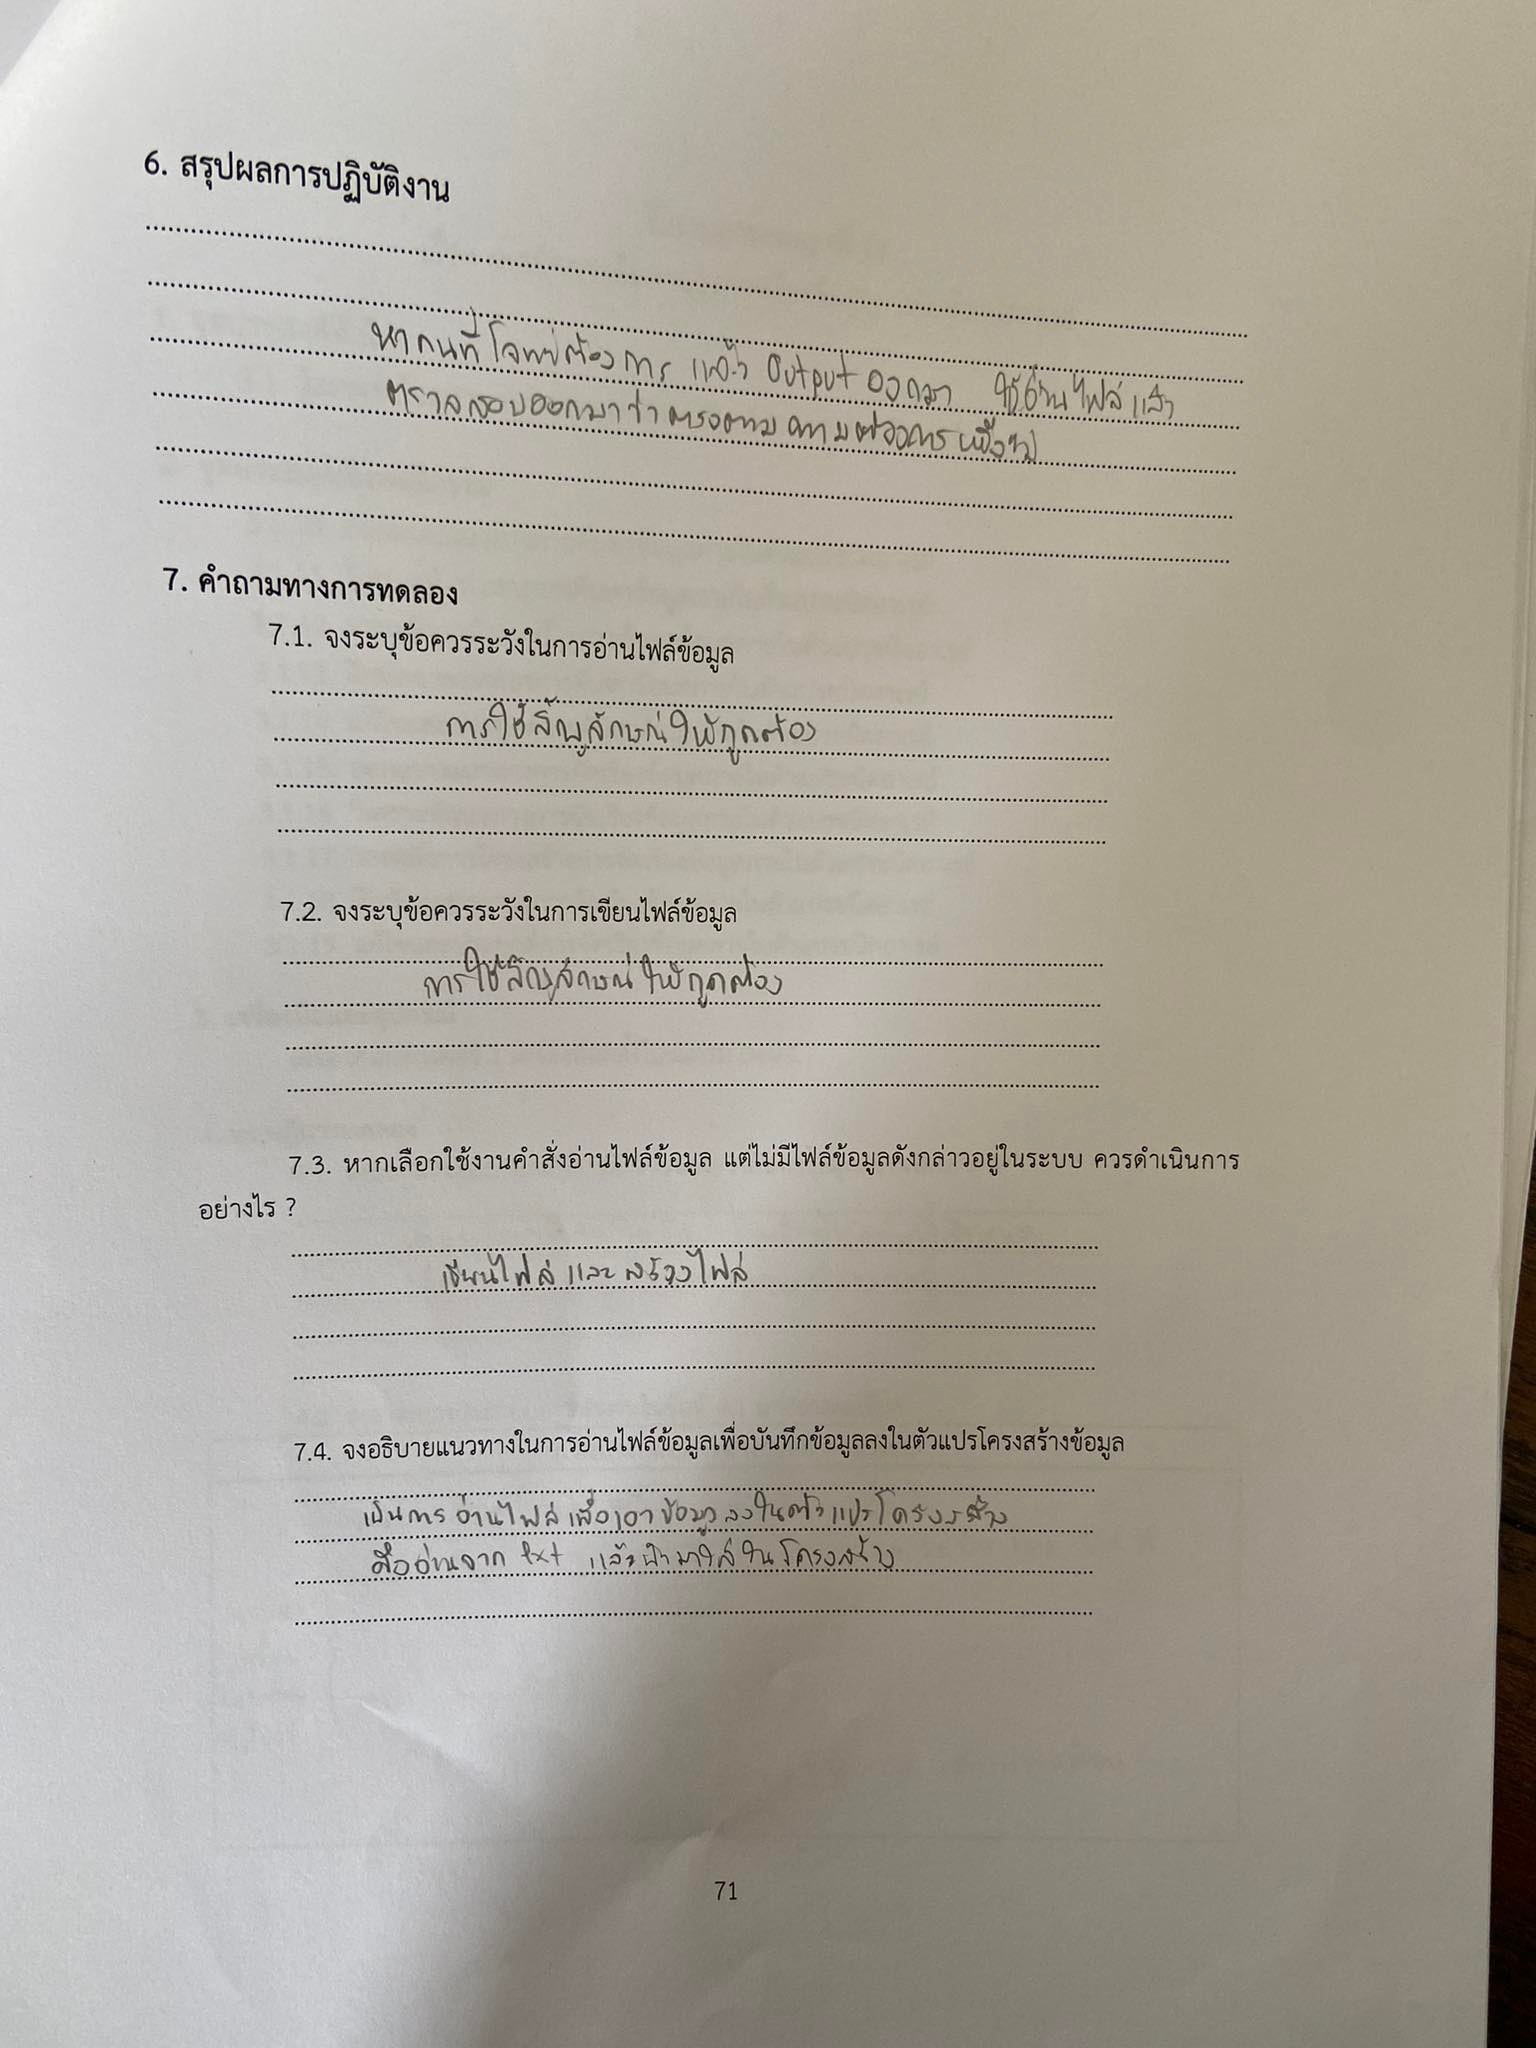 6. สรุปผลการปฏิบัติงาน
หาคนที่โจทย์ต้องการ แล้ว Output ออกมา ใช้อ่านไฟล์แล้ว
ตรวจสอบออกมาว่าตรงตามความต้องการ
7. คำถามทางการทดลอง
7.1. จงระบุข้อควรระวังในการอ่านไฟล์ข้อมูล
การใช้สัญลักษณ์ให้ถูกต้อง
7.2. จงระบุข้อควรระวังในการเขียนไฟล์ข้อมูล
การใช้สัญลักษณ์ให้ถูกต้อง
7.3. หากเลือกใช้งานคำสั่งอ่านไฟล์ข้อมูล แต่ไม่มีไฟล์ข้อมูลดังกล่าวอยู่ในระบบ ควรดำเนินการ
อย่างไร ?
เขียนไฟล์ และ สร้างไฟล์
7.4. จงอธิบายแนวทางในการอ่านไฟล์ข้อมูลเพื่อบันทึกข้อมูลลงในตัวแปรโครงสร้างข้อมูล
เป็นการอ่านไฟล์เพื่อเอาข้อมูลลงในตัวแปรโครงสร้าง
คืออ่านจาก txt แล้วนำมาใส่ในโครงสร้าง
71